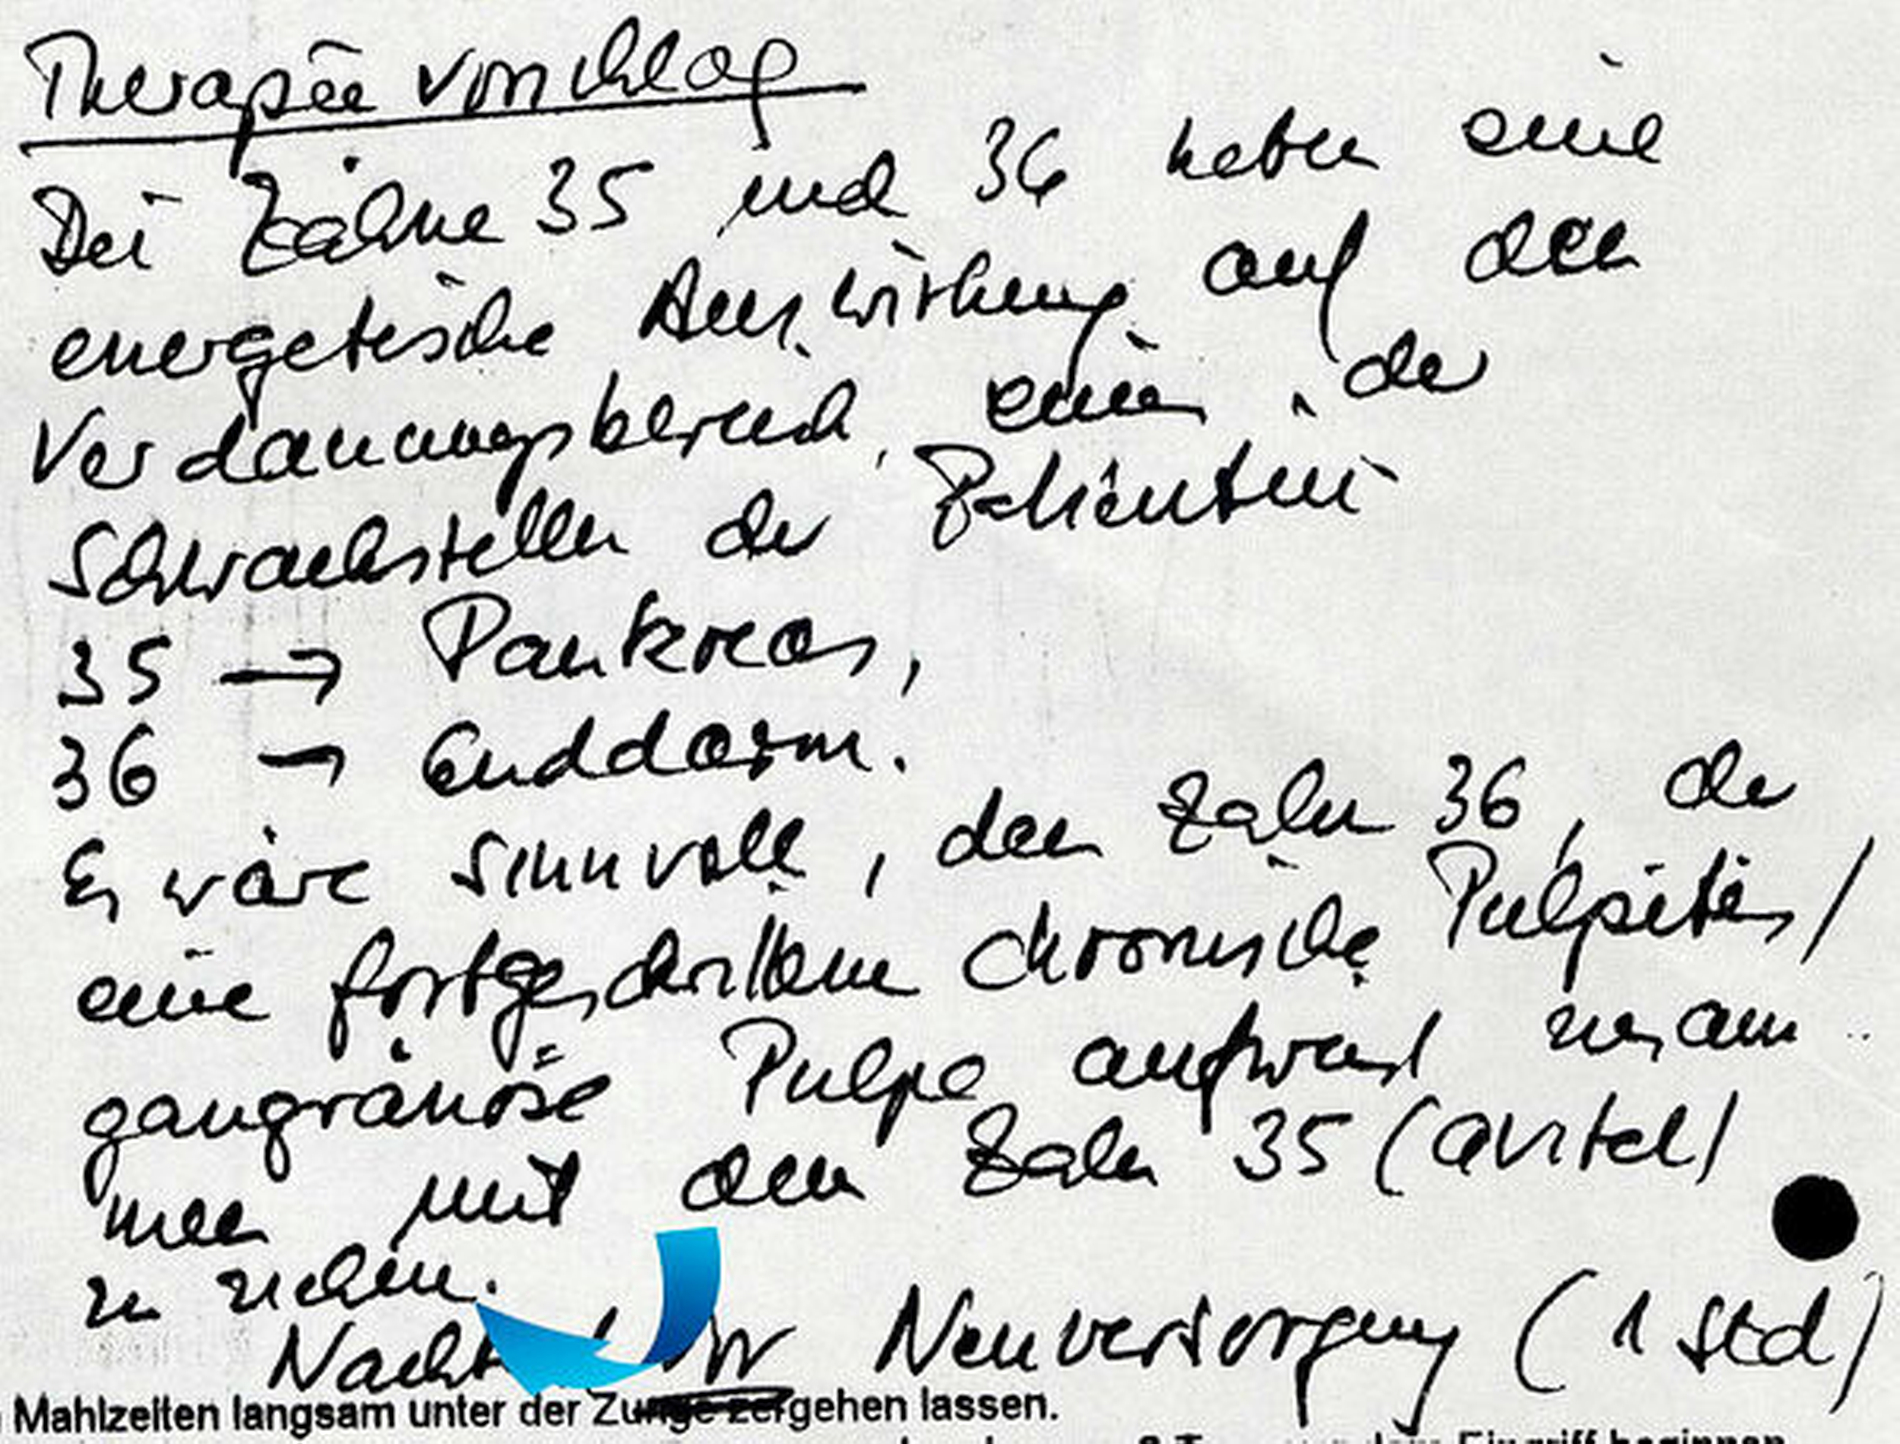 Therapie vorschlag
Die Zähne 35 und 36 haben eine
energetische Auswirkung auf den
Verdauungsbereich, einer der
Schwachstellen der Patientin
35 → Pankreas,
36 → Enddarm.
Es wäre sinnvoll, den Zahn 36, der
eine fortgeschrittene chronische Pulpitis/
gangränöse Pulpa aufweist zusam
men mit dem Zahn 35 (avital)
zu ziehen.
Neuversorgung (1 Std)
Mahlzeiten langsam unter der Zunge zergehen lassen.